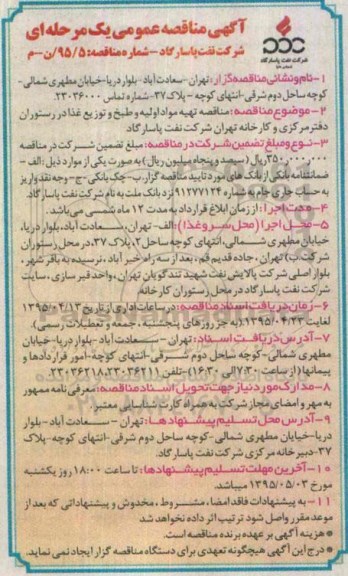 آگهی مناقصه عمومی یک مرحله ای
شرکت نفت پاسارگاد - شماره مناقصه: ۹۵/۵/ن-م
شرکت نفت پاسارگاد
۱-نام ونشانی مناقصه گزار: تهران-سعادت آباد-بلوار دریا-خیابان مطهری شمالی-
کوچه ساحل دوم شرقی-انتهای کوچه - پلاک۳۷-شماره تماس ۲۳۰۳۶۰۰۰
۲-موضوع مناقصه: مناقصه تهیه مواد اولیه و طبخ و توزیع غذا در رستوران
دفتر مرکزی و کارخانه تهران شرکت نفت پاسارگاد
۳-نوع ومبلغ تضمین شرکت در مناقصه: مبلغ تضمین شرکت در مناقصه
۳۵۰,۰۰۰,۰۰۰ریال (سیصد و پنجاه میلیون ریال) به صورت یکی از موارد ذیل: الف-
ضمانتنامه بانکی از بانک های مورد تایید مناقصه گزار، ب-چک بانکی-ج-وجه نقد واریز
به حساب جاری جام به شماره ۹۱۲۷۷۱۲۴ نزد بانک ملت به نام شرکت نفت پاسارگاد
۴-مدت اجرا: از زمان ابلاغ قرارداد به مدت ۱۲ ماه شمسی می باشد.
۵-محل اجرا (محل سرو غذا): الف-تهران، سعادت آباد، بلوار دریا،
خیابان مطهری شمالی، انتهای کوچه ساحل۲، پلاک ۳۷، در محل رستوران
شرکت ب) تهران، جاده قدیم قم، بعد از سه راه خیر آباد، نرسیده به باقر شهر،
بلوار اصلی شرکت پالایش نفت شهید تندگویان تهران، واحد قیر سازی، سایت
شرکت نفت پاسارگاد در محل رستوران کارخانه
۶-زمان دریافت اسناد مناقصه: در ساعات اداری از تاریخ ۱۳۹۵/۰۴/۱۳
لغایت ۱۳۹۵/۰۴/۲۳ (به جز روزهای پنجشنبه، جمعه و تعطیلات رسمی).
۷-آدرس دریافت اسناد: تهران - سعادت آباد-بلوار دریا-خیابان
مطهری شمالی-کوچه ساحل دوم شرقی-انتهای کوچه-امور قراردادها و
پیمانها(از ساعت ۷:۳۰ الی ۱۶:۳۰)-تلفن ۲۳۰۳۶۲۱۱-۲۳۰۳۶۲۱۸
۸-مدارک مورد نیاز جهت تحویل اسناد مناقصه: معرفی نامه ممهور
به مهر و امضای مجاز شرکت به همراه کارت شناسایی معتبر
۹-آدرس محل تسلیم پیشنهادها: تهران - سعادت آباد-بلوار
دریا-خیابان مطهری شمالی-کوچه ساحل دوم شرقی-انتهای کوچه-پلاک
۳۷-دبیر خانه مرکزی شرکت نفت پاسارگاد.
۱۰-آخرین مهلت تسلیم پیشنهادها: تا ساعت ۱۸:۰۰ روز یکشنبه
مورخ ۱۳۹۵/۰۵/۰۳ میباشد.
۱۱-به پیشنهادات فاقد امضا، مشروط، مخدوش و پیشنهاداتی که بعد از
موعد مقرر واصل شود ترتیب اثر داده نخواهد شد
*هزینه آگهی بر عهده برنده مناقصه است.
*درج این آگهی هیچگونه تعهدی برای دستگاه مناقصه گزار ایجاد نمی نماید.